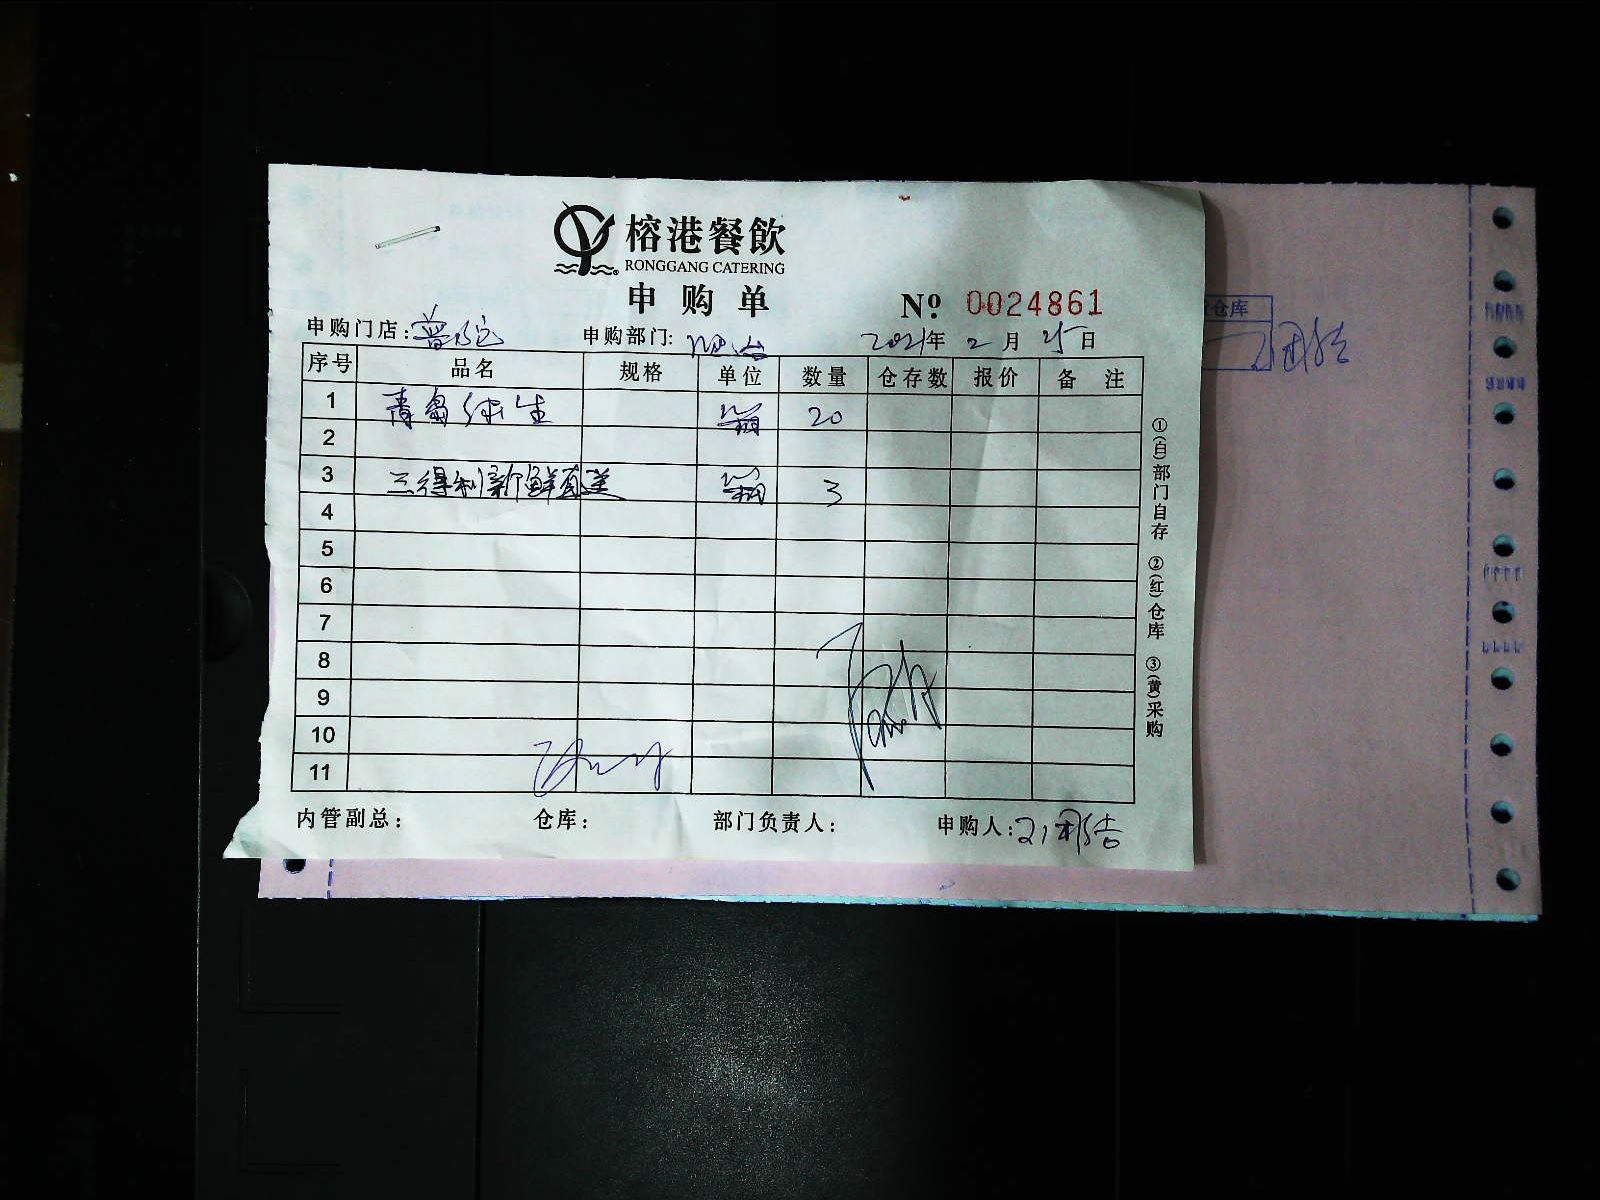 榕港餐飲
RONGGANG CATERING
申购单
№ 0024861
申购门店:普陀 申购部门:吧台 2021年 2 月 25 日
序号 品名 规格 单位 数量 仓存数 报价 备 注
1 青岛纯生 箱 20
2
3 三得利新鲜直送 箱 3
4
5
6
7
8
9
10
11
内管副总: 仓库: 部门负责人: 申购人:
①(白)部门自存 ②(红)仓库 ③(黄)采购
仓库